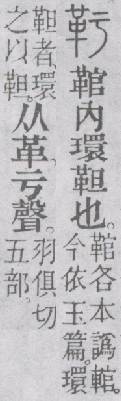 䩪內環靼也。
䩪各本譌輨。
今依玉篇。環
靼者、環
之以靼。
从革、亏聲。
羽俱切
五部。